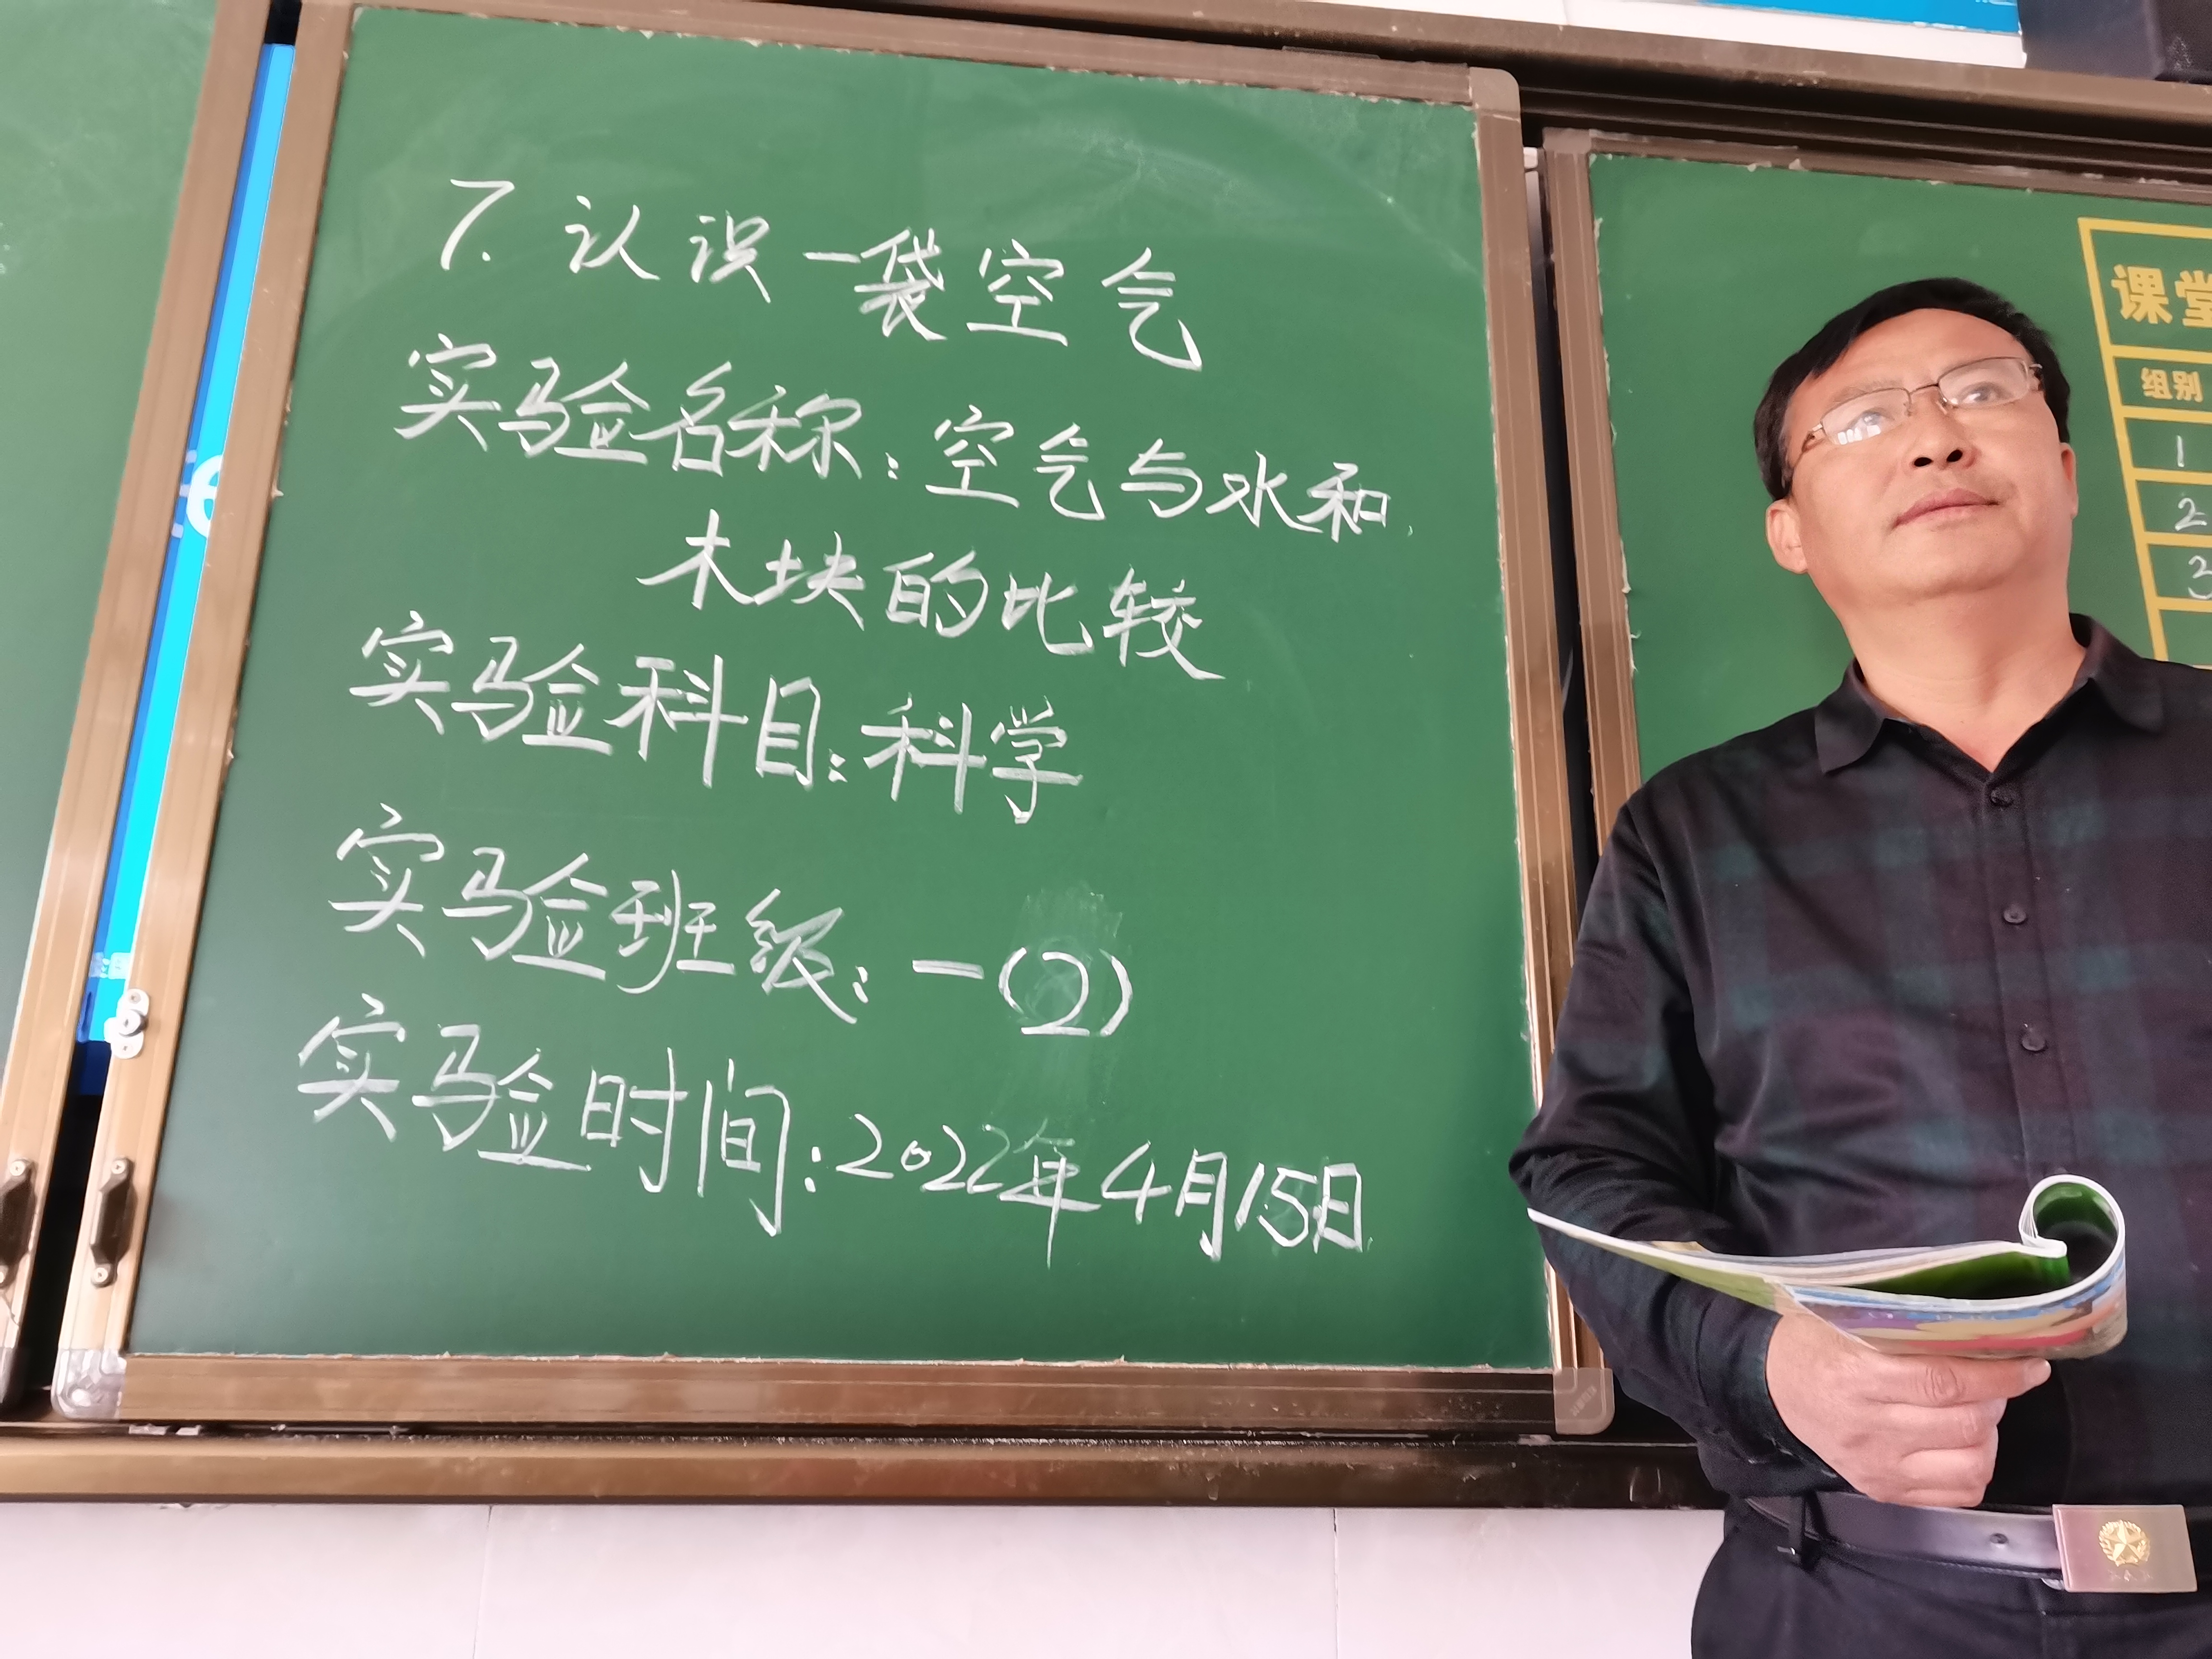 7. 认识一袋空气
实验名称：空气与水和
木块的比较
实验科目：科学
实验班级：一（2）
实验时间：2022年4月15日
课堂
组别
1
2
3